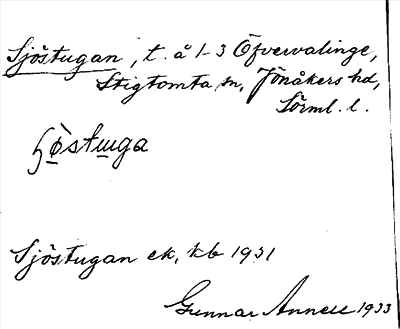 Sjöstugan, t. å 1-3 Öfvervalinge,
Stigtomta sn, Jönåkers hd,
Sörml. l.
Sjöstugan ek, kb 1931
Gunnar Annell 1933